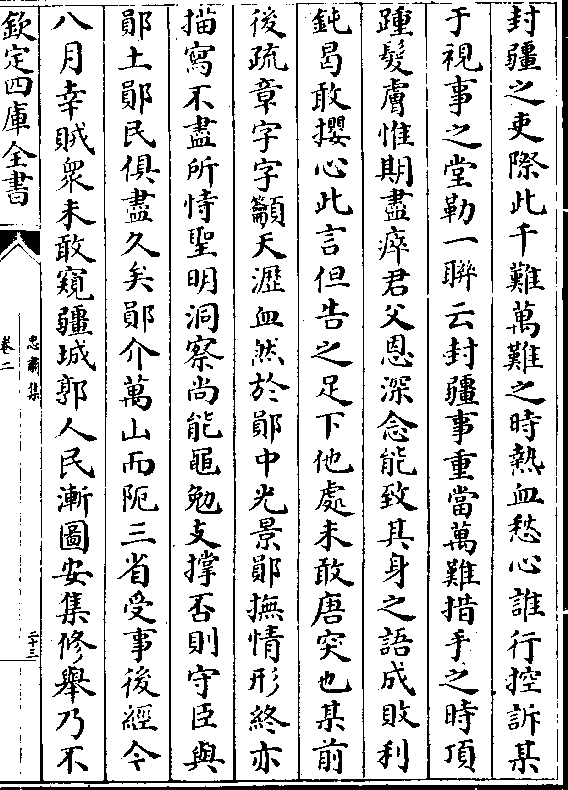 封疆之吏際此千難萬難之時熱血愁心誰行控訴某
于視事之堂勒一聯云封疆事重當萬難措手之時頂
踵髮膚惟期盡瘁君父恩深念能致其身之語成敗利
鈍曷敢攖心此言但告之足下他處未敢唐突也某前
後疏章字字籲天瀝血然於鄖中光景鄖撫情形終亦
描寫不盡所恃聖明洞察尚能黽勉支撐否則守臣與
鄖土鄖民俱盡久矣鄖介萬山而阨三省受事後經今
八月幸賊衆未敢窺疆城郭人民漸圖安集修舉乃不
欽定四庫全書
忠肅集
卷二
二十三